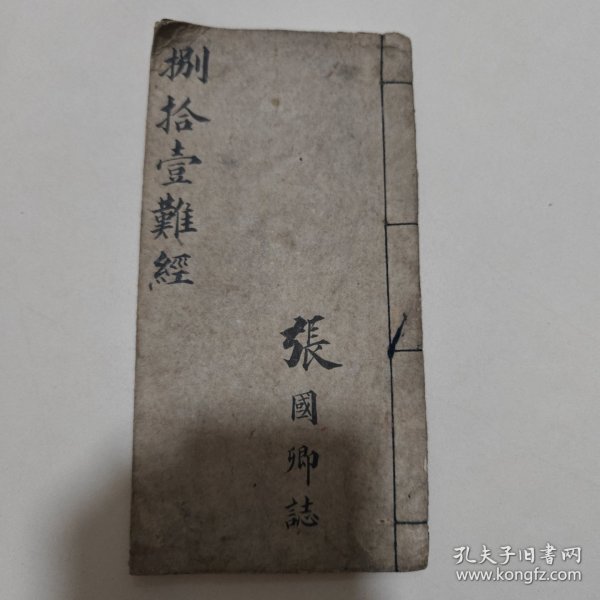 捌拾壹難經
張國卿誌
孔夫子旧书网
www.kongfz.com